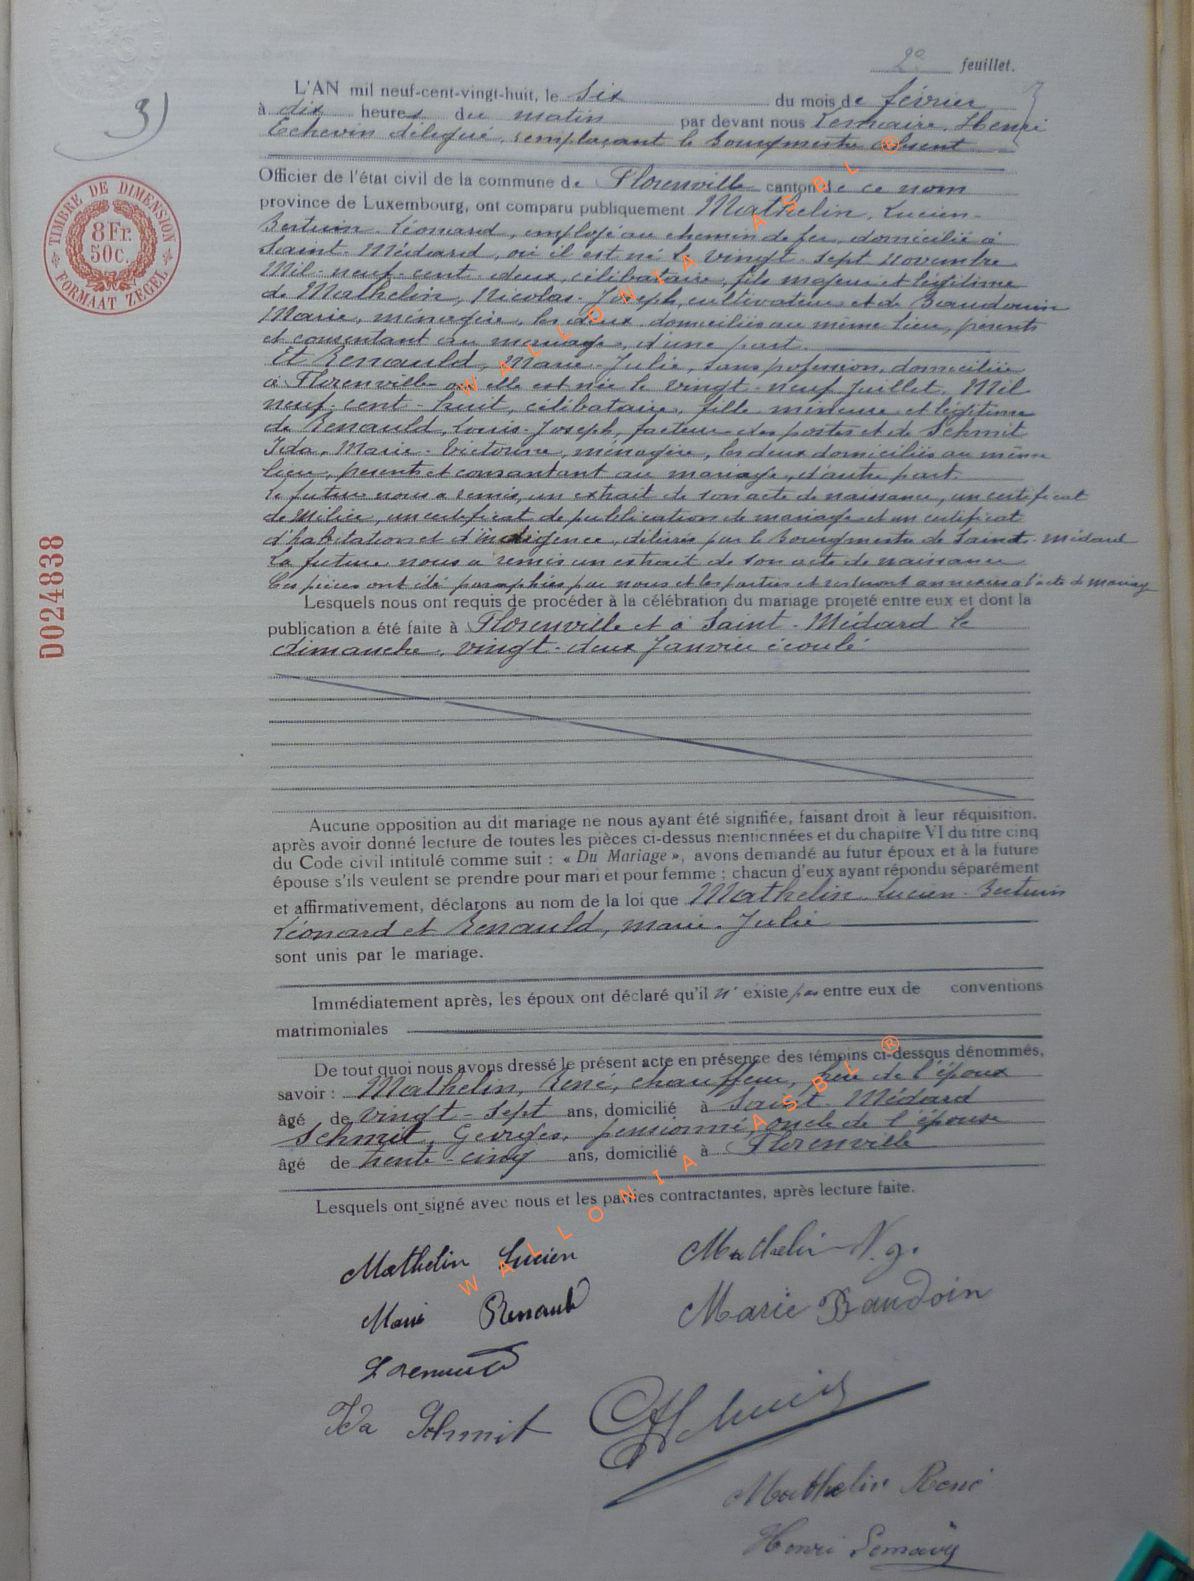 2e feuillet.
3)
L'AN mil neuf-cent-vingt-huit, le six du mois de février
à dix heures du matin par devant nous Lemaire, Henri
Echevin délégué, remplaçant le Bourgmestre absent
Officier de l'état civil de la commune de Florenville canton de ce nom
province de Luxembourg, ont comparu publiquement Mathelin, Lucien-
Bertuin Léonard, employé au chemin de fer, domicilié à
Saint-Médard, où il est né le vingt-sept novembre
Mil-neuf-cent-deux, célibataire, fils majeur et légitime
de Mathelin, Nicolas-Joseph, cultivateur et de Baudouin
Marie, ménagère, les deux domiciliés au même lieu, présents
et consentant au mariage, d'une part.
Et Renauld, Marie-Julie, sans profession, domiciliée
à Florenville où elle est née le vingt-neuf Juillet, Mil
neuf-cent-huit, célibataire, fille mineure et légitime
de Renauld, Louis-Joseph, facteur des postes et de Schmit
Ida, Marie-Victorine, ménagère, les deux domiciliés au même
lieu, présents et consantant au mariage, d'autre part.
Le futur nous a remis, un extrait de son acte de naissance, un certificat
de Milice, un certificat de publication de mariage et un certificat
d'habitation et d'indigence, délivrés par le Bourgmestre de Saint-Médard
La future nous a remis un extrait de son acte de naissance
Ces pièces ont été paraphées par nous et les parties et resteront annexées à l'acte de mariage
Lesquels nous ont requis de procéder à la célébration du mariage projeté entre eux et dont la
publication a été faite à Florenville et à Saint-Médard le
dimanche, vingt-deux Janvier écoulé
Aucune opposition au dit mariage ne nous ayant été signifiée, faisant droit à leur réquisition.
après avoir donné lecture de toutes les pièces ci-dessus mentionnées et du chapitre VI du titre cinq
du Code civil intitulé comme suit : « Du Mariage », avons demandé au futur époux et à la future
épouse s'ils veulent se prendre pour mari et pour femme ; chacun d'eux ayant répondu séparément
et affirmativement, déclarons au nom de la loi que Mathelin, Lucien-Bertuin
Léonard et Renauld, Marie-Julie
sont unis par le mariage.
Immédiatement après, les époux ont déclaré qu'il n'existe pas entre eux de conventions
matrimoniales
De tout quoi nous avons dressé le présent acte en présence des témoins ci-dessous dénommés,
savoir : Mathelin, René, chauffeur, frère de l'époux
âgé de vingt-sept ans, domicilié à Saint-Médard
Schmit, Georges, pensionné, oncle de l'épouse
âgé de trente-cinq ans, domicilié à Florenville
Lesquels ont signé avec nous et les parties contractantes, après lecture faite.
Mathelin Lucien
Mathelin N. J.
Marie Renauld
Marie Baudoin
L Renauld
Ida Schmit
Mathelin René
Henri Lemaire
TIMBRE DE DIMENSION
8 Fr.
50c.
FORMAAT ZEGEL
D024838
WALLONIA ASBL ®
WALLONIA ASBL ®